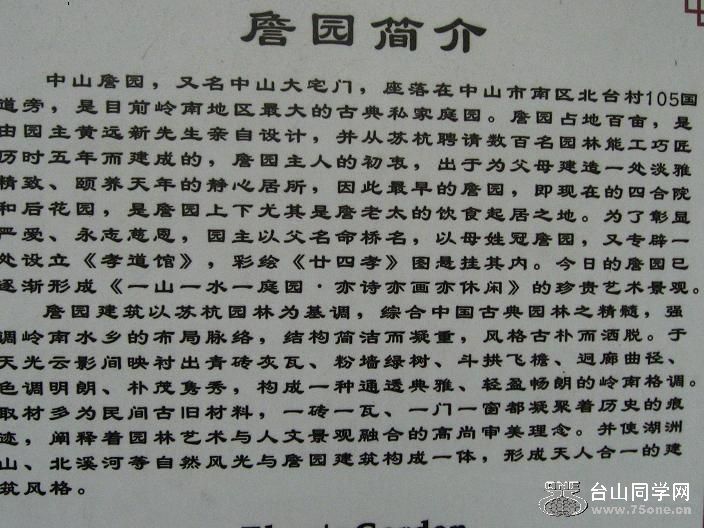 詹园简介
中山詹园，又名中山大宅门，座落在中山市南区北台村105国
道旁，是目前岭南地区最大的古典私家庭园。詹园占地百亩，是
由园主黄远新先生亲自设计，并从苏杭聘请数百名园林能工巧匠
历时五年而建成的，詹园主人的初衷，出于为父母建造一处淡雅
精致、颐养天年的静心居所，因此最早的詹园，即现在的四合院
和后花园，是詹园上下尤其是詹老太的饮食起居之地。为了彰显
严爱、永志慈恩，园主以父名命桥名，以母姓冠詹园，又专辟一
处设立《孝道馆》，彩绘《廿四孝》图悬挂其内。今日的詹园已
逐渐形成《一山一水一庭园·亦诗亦画亦休闲》的珍贵艺术景观。
詹园建筑以苏杭园林为基调，综合中国古典园林之精髓，强
调岭南水乡的布局脉络，结构简洁而凝重，风格古朴而洒脱。于
天光云影间映衬出青砖灰瓦、粉墙绿树、斗拱飞檐、迴廊曲径、
色调明朗、朴茂隽秀，构成一种通透典雅、轻盈畅朗的岭南格调。
取材多为民间古旧材料，一砖一瓦、一门一窗都凝聚着历史的痕
迹，阐释着园林艺术与人文景观融合的高尚审美理念。并使湖洲
山、北溪河等自然风光与詹园建筑构成一体，形成天人合一的建
筑风格。
Garden
台山同学网
www.75one.cn